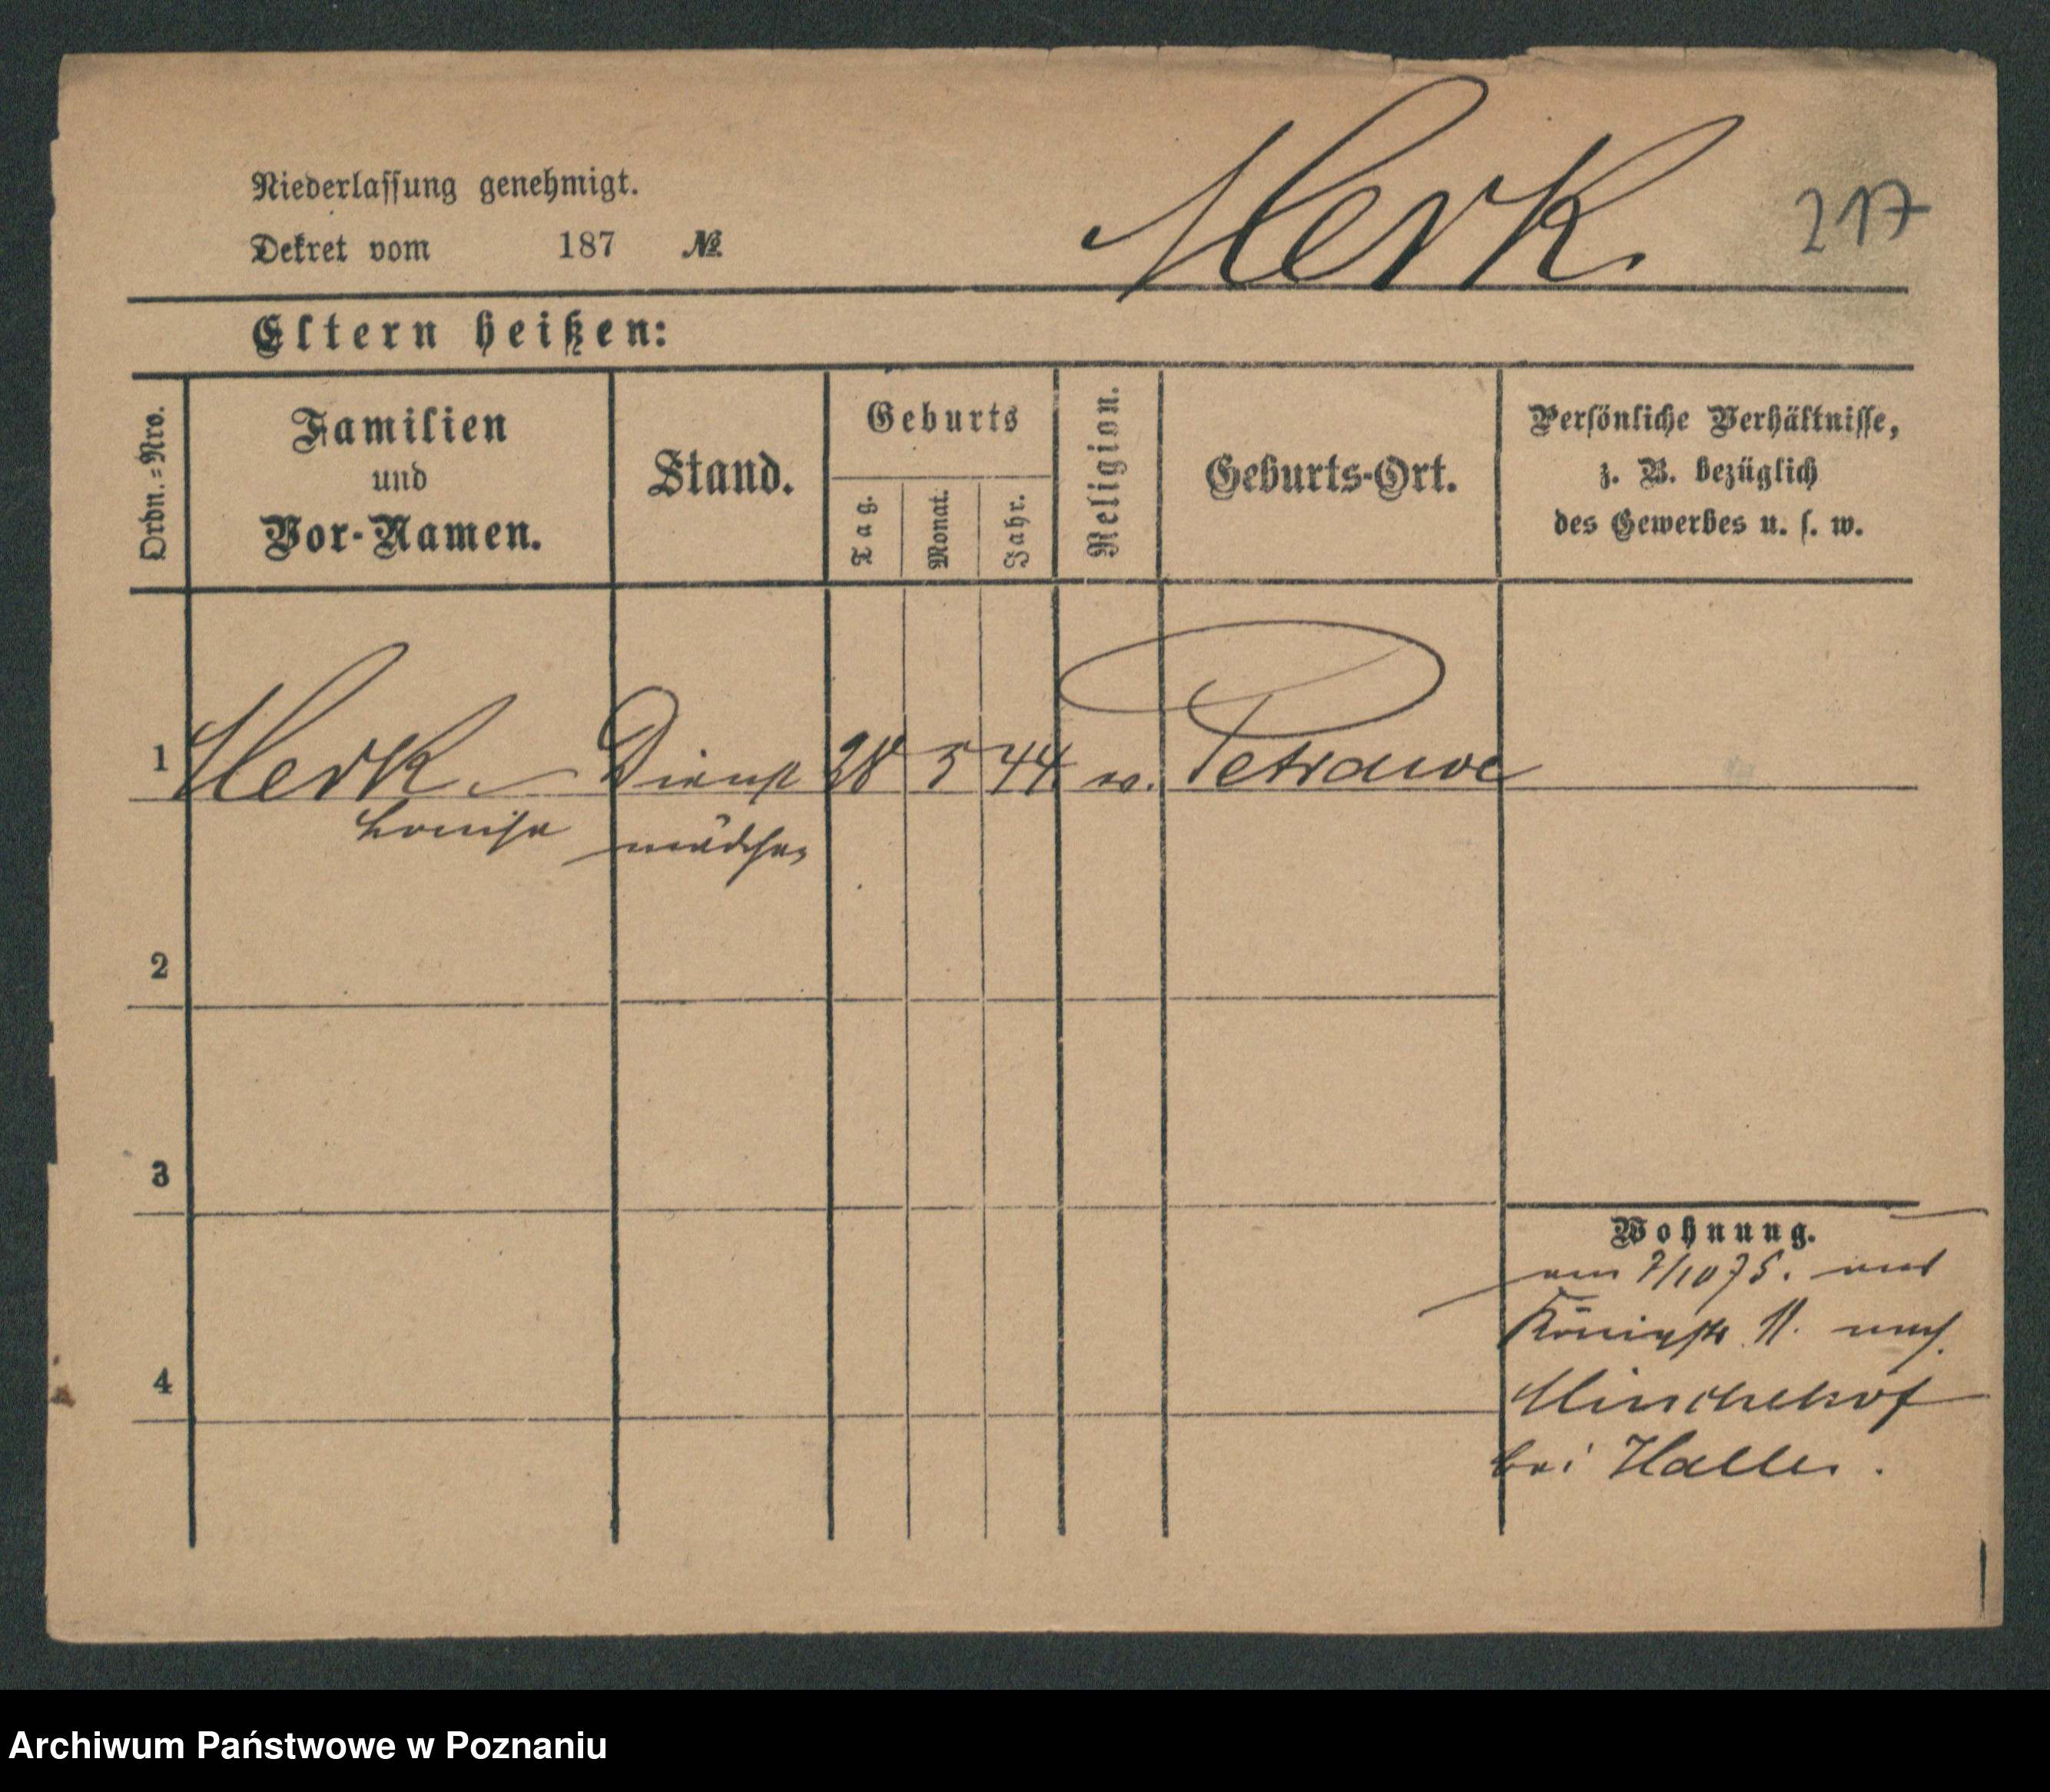 Niederlassung genehmigt.
Dekret vom 187 №
Merk. 217
Eltern heißen:
Ordn.=Nro.
Familien
und
Vor-Namen.
Stand.
Geburts
Tag.
Monat.
Jahr.
Religion.
Geburts-Ort.
Persönliche Verhältnisse,
z. B. bezüglich
des Gewerbes u. s. w.
1 Merk Dienst 28 5 44 ev. Petrawe
Louise mädchen
2
3
Wohnung.
am 7/10 75. aus
Königstr 11. nach
4
bei Halle.
Archiwum Państwowe w Poznaniu